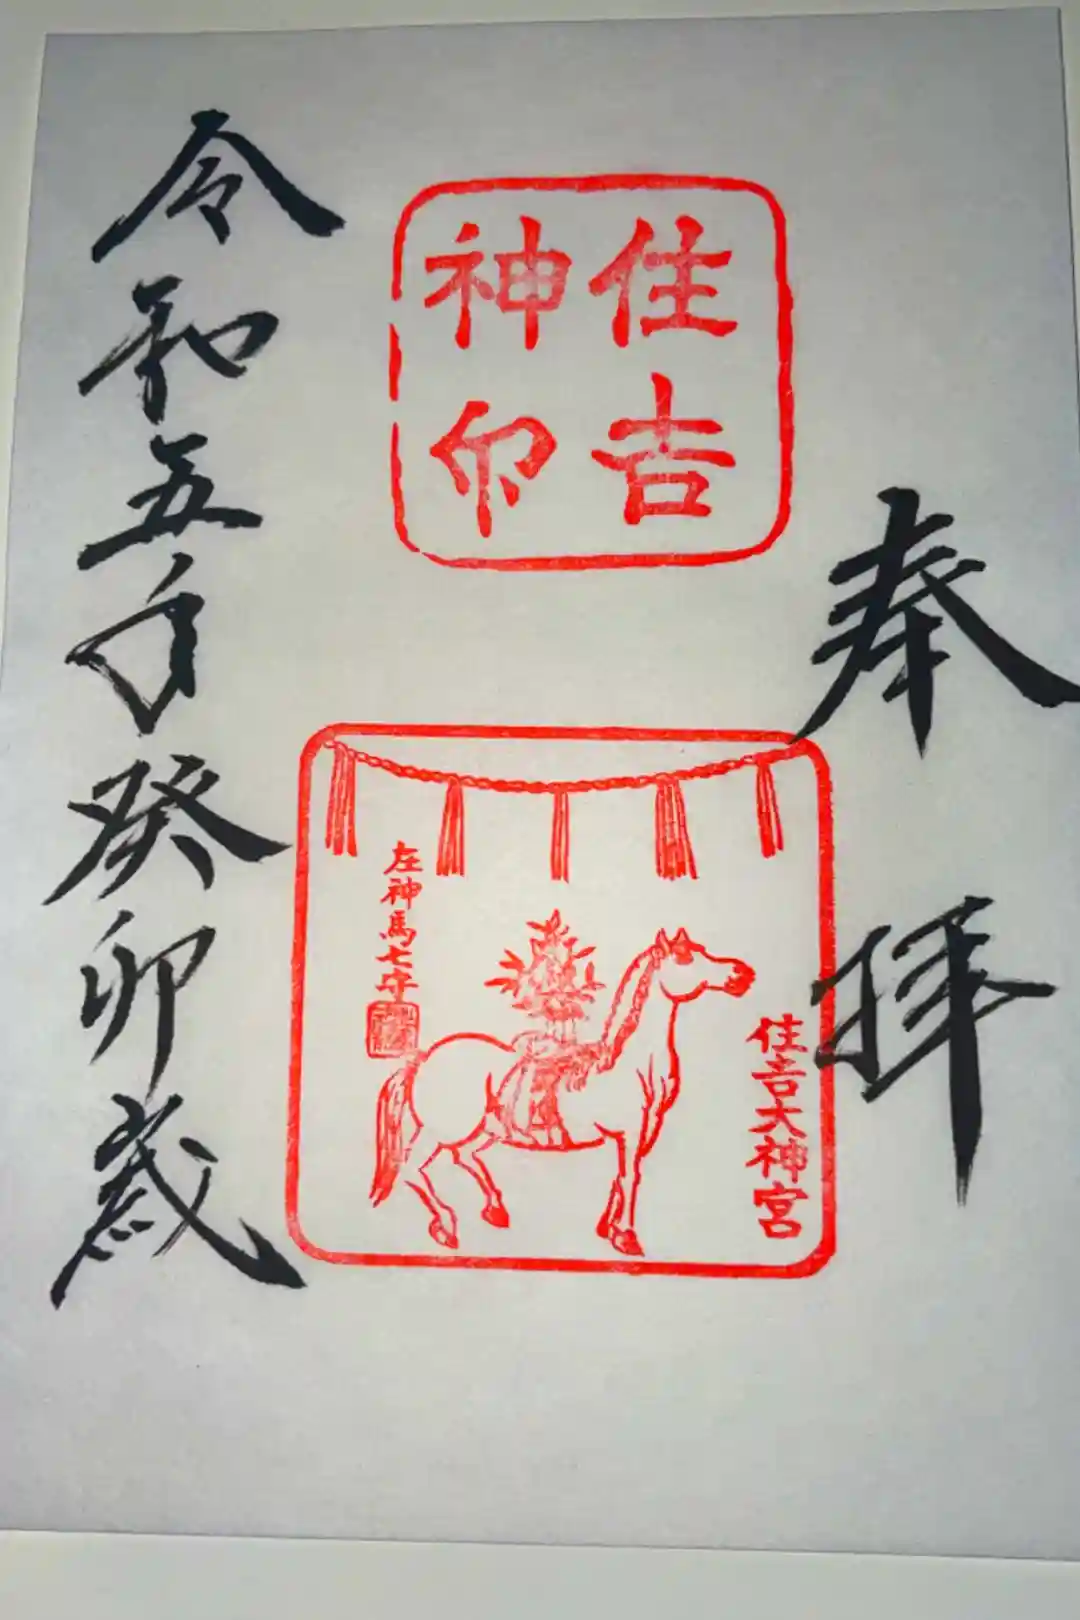 奉拝
住吉
神印
住吉大神宮
左神馬七守
令和五年癸卯歳